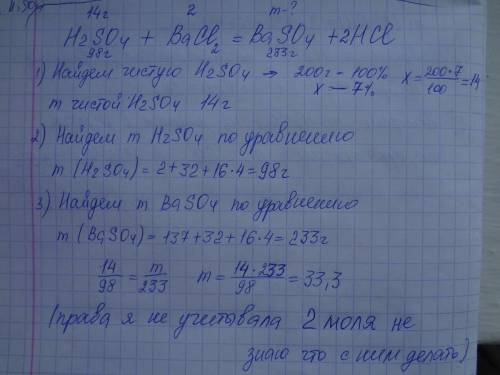 14г 2 m-?
H₂SO₄ + BaCl₂ = BaSO₄ + 2HCl
98г 233г
1) Найдем чистую H₂SO₄ → 200г - 100% X = 200·7/100 = 14
m чистой H₂SO₄ 14г x — 7%
2) Найдем m H₂SO₄ по уравнению
m (H₂SO₄) = 2+32+16·4=98г
3) Найдем m BaSO₄ по уравнению
m (BaSO₄) = 137+32+16·4=233г
14/98 = m/233 m = 14·233/98 = 33,3
(права я не учитывала 2 моля не
знаю что с ним делать)